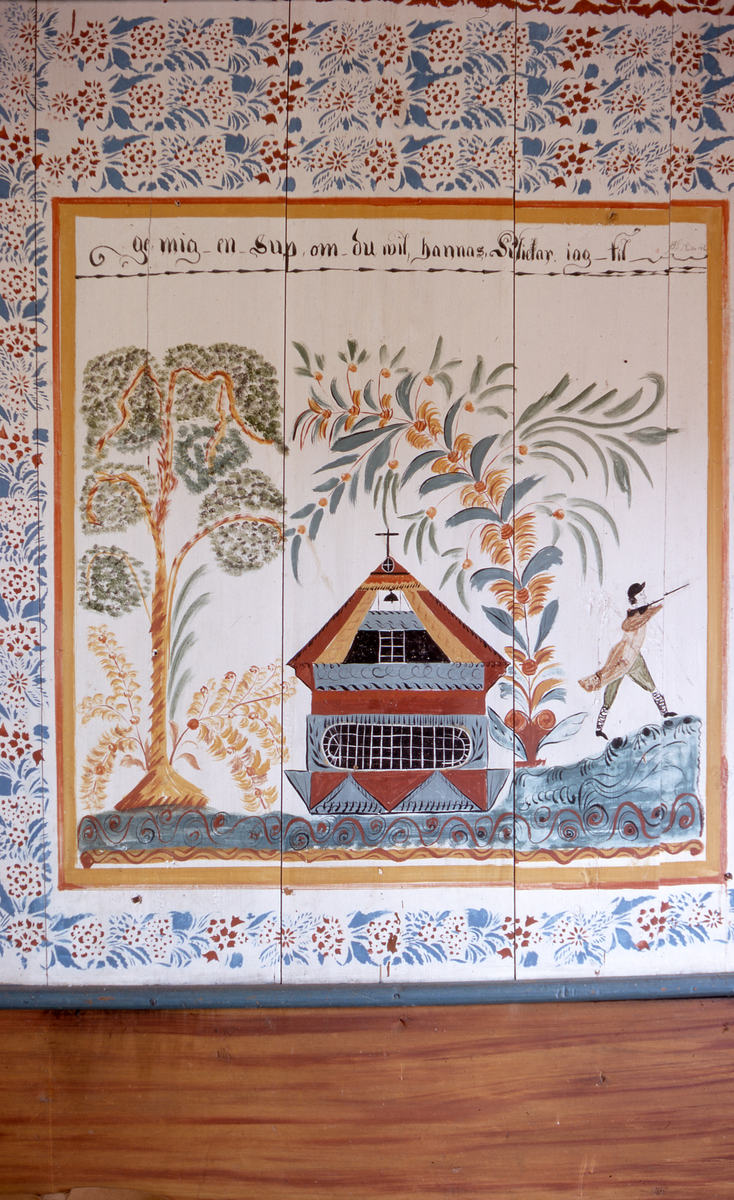 ge mig en Sup, om du wil hannas, Skietar iag til